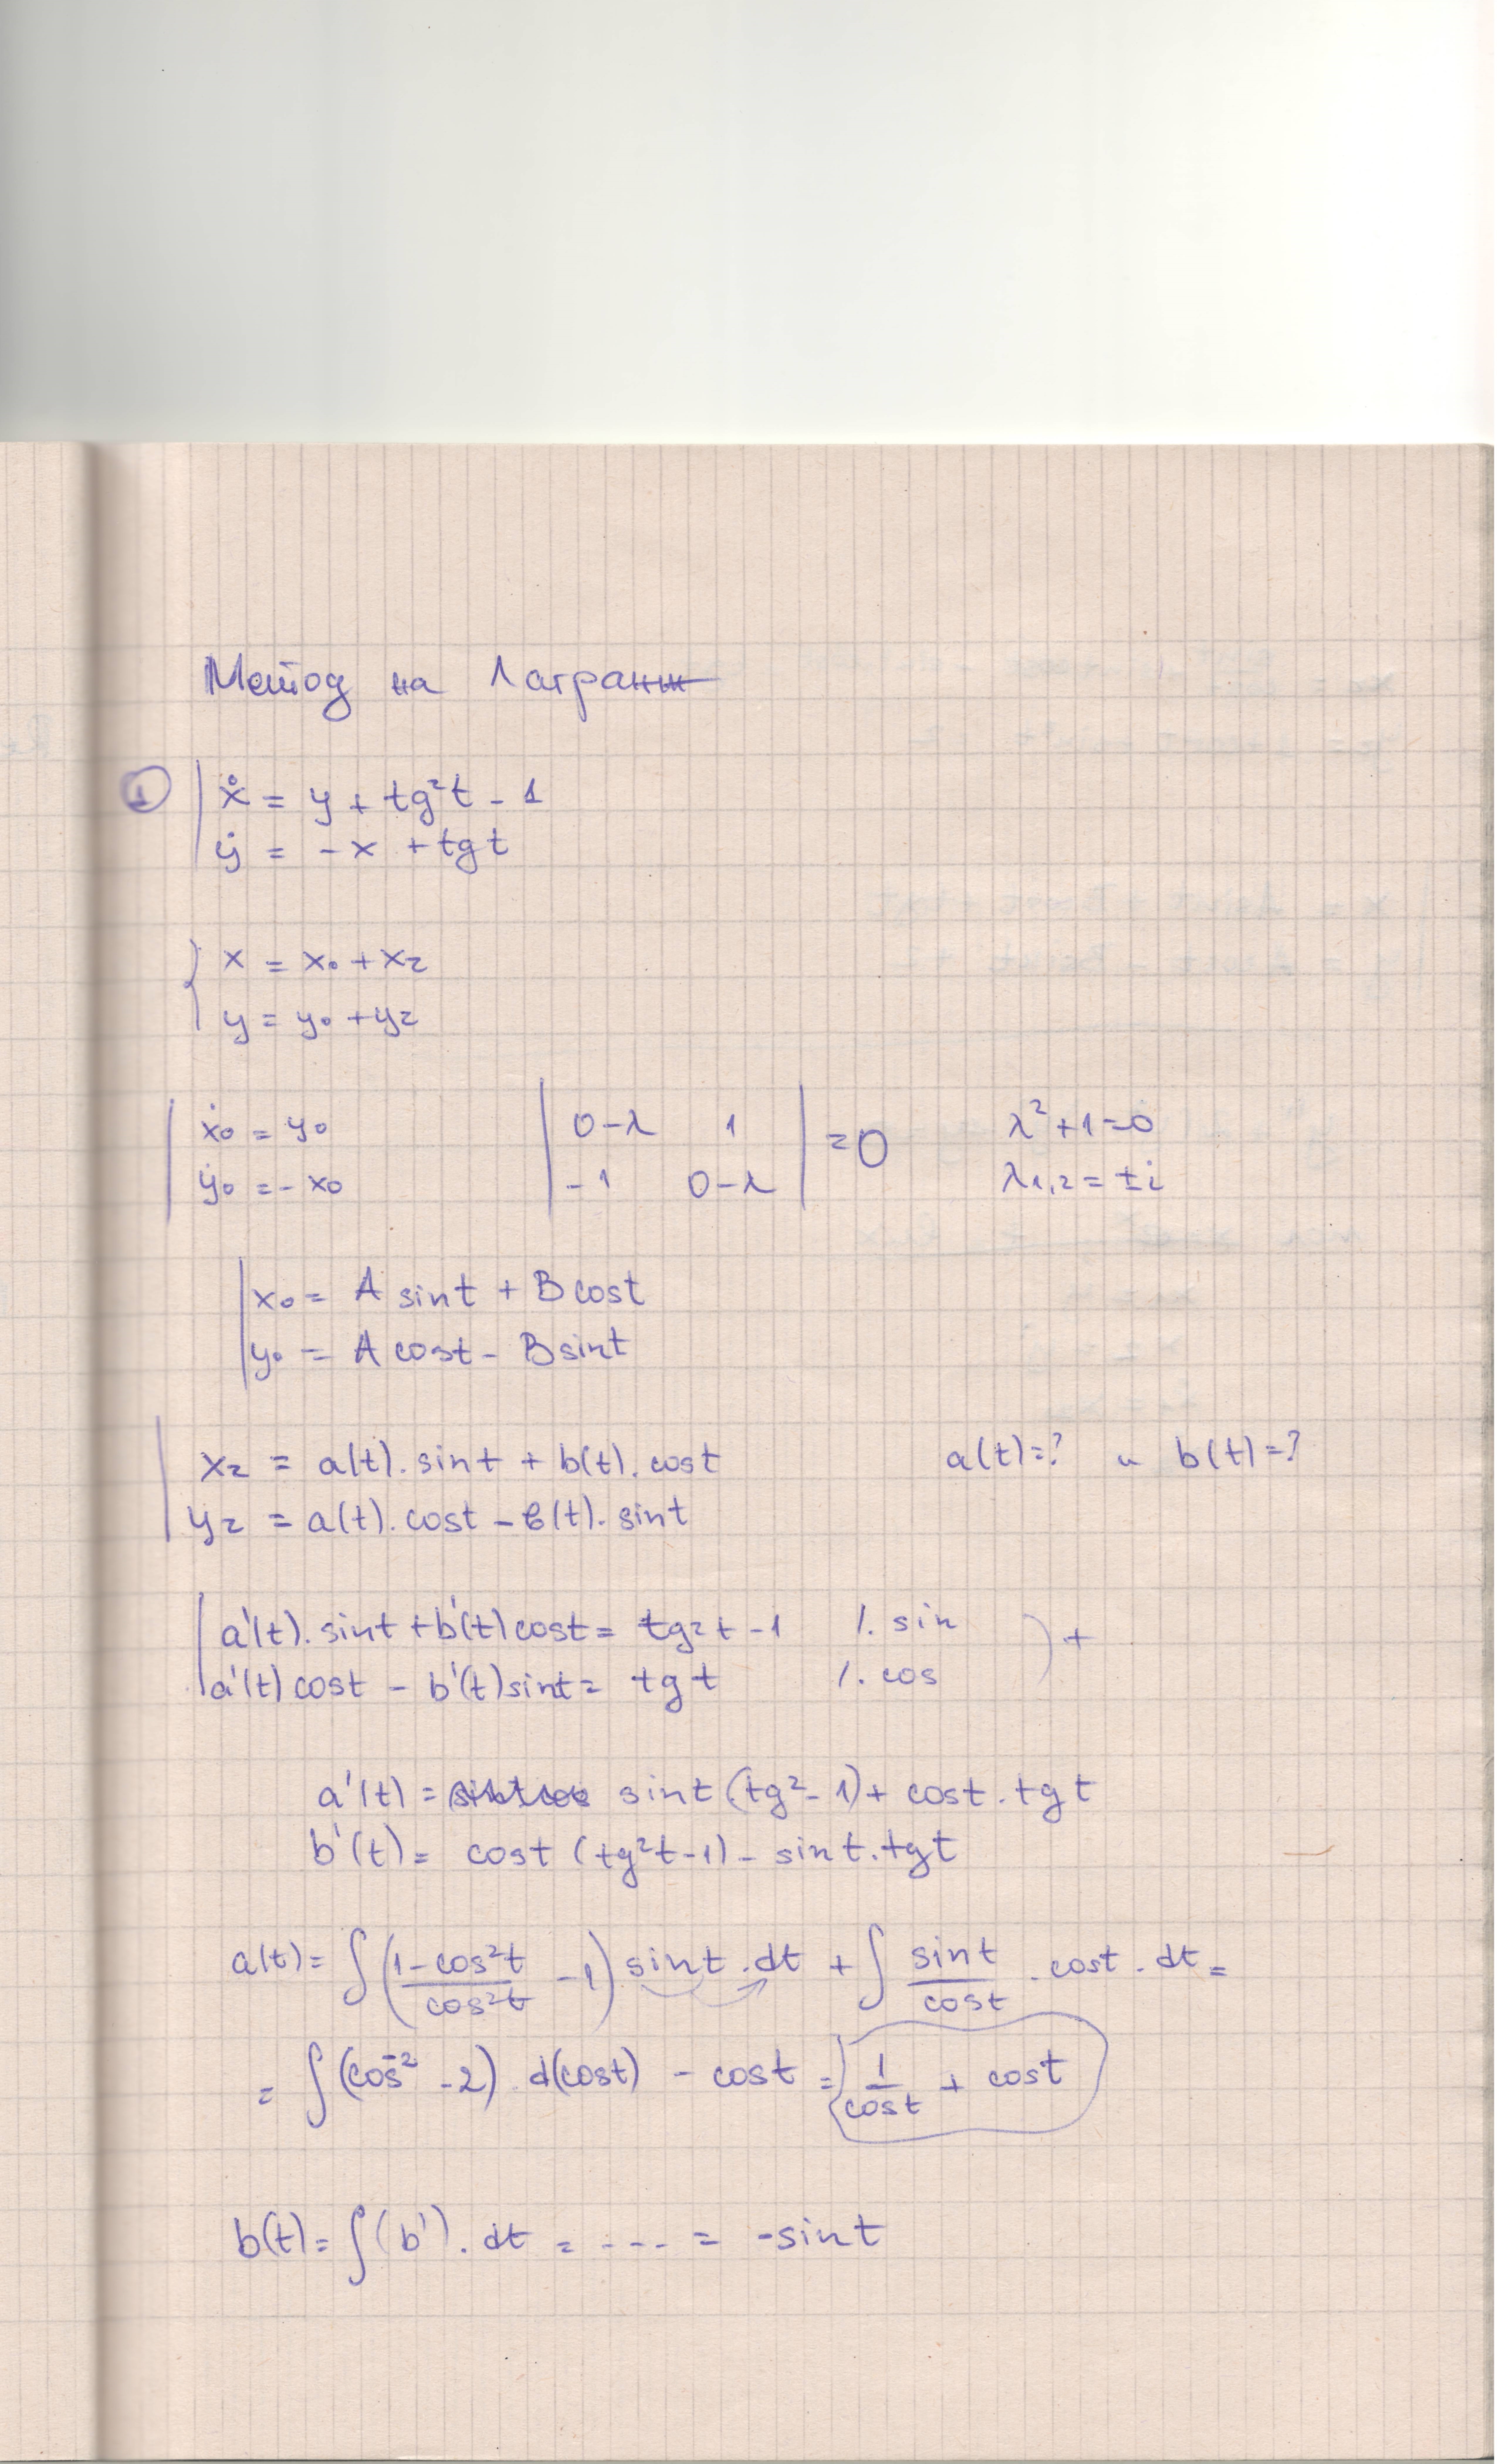 Метод на Лагранж
① ẋ = y + tg²t - 1
ẏ = -x + tgt
x = x₀ + x₂
y = y₀ + y₂
ẋ₀ = y₀ | 0-λ 1 | = 0 λ² + 1 = 0
ẏ₀ = - x₀ | -1 0-λ | λ₁,₂ = ± i
x₀ = A sint + B cost
y₀ = A cost - B sint
x₂ = a(t). sint + b(t). cost a(t)=? и b(t)=?
y₂ = a(t). cost - b(t). sint
a'(t). sint + b'(t) cost = tg²t - 1 /. sin
a'(t) cost - b'(t) sint = tgt /. cos ) +
a'(t) = sint (tg² - 1) + cost . tgt
b'(t) = cost (tg²t - 1) - sint . tgt
a(t) = ∫ ( (1 - cos²t)/(cos²t) - 1 ) sint . dt + ∫ sint/cost . cost . dt =
= ∫ (cos⁻² - 2) . d(cost) - cost = 1/cost + cost
b(t) = ∫ (b') . dt = - - - = -sint